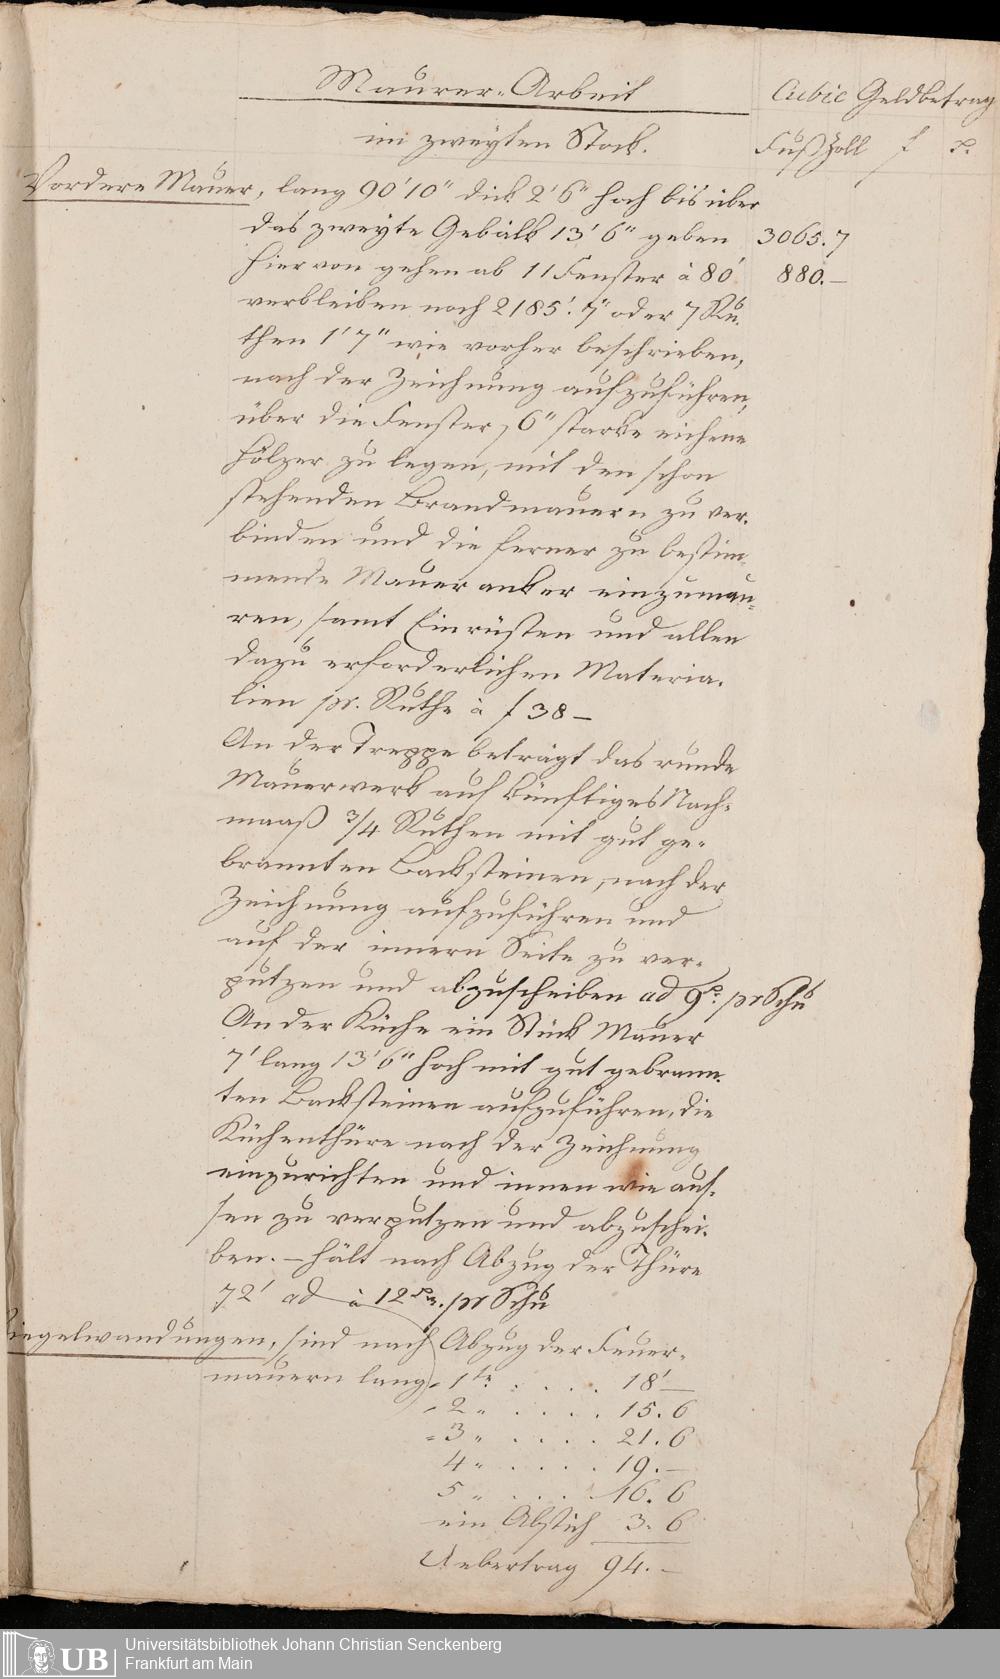 Maurer-Arbeit
Cubic Geldbetrag
im zweyten Stock.
Fuß Zoll f x.
Vordere Mauer, lang 90' 10" dick 2' 6" hoch bis über
das zweyte Gebälk 13' 6" geben 3065.7
hiervon gehen ab 11 Fenster à 80' 880.—
verbleiben noch 2185'. 7" oder 7 Ru-
then 1' 7" wie vorher beschrieben,
nach der Zeichnung aufzuführen,
über die Fenster, 6" starke eichene
Hölzer zu legen, mit den schon
stehenden Brandmauern zu ver-
binden und die ferner zu bestim-
mende Maueranker einzumau-
ren, samt Einrüsten und allen
dazu erforderlichen Materia-
lien pr. Ruthe à f 38 —
An der Treppe beträgt das runde
Mauerwerk auf künftiges Nach-
maaß 3/4 Ruthen mit gut ge-
brannten Backsteinen, nach der
Zeichnung aufzuführen und
auf der innern Seite zu ver-
putzen und abzuscheiben ad 9 x. pr Schu
An der Küche ein Stück Mauer
7' lang 13' 6" hoch mit gut gebrann-
ten Backsteinen aufzuführen, die
Küchenthüre nach der Zeichnung
einzurichten und innen wie aus-
sen zu verputzen und abzuschei-
ben. — hält nach Abzug der Thüre
72' ad à 12 xr. pr Schu
Riegelwandungen, sind nach Abzug der Feuer-
mauern lang, 1te . . . . 18' —
" 2 " . . . . 15. 6
" 3 " . . . . 21. 6
4 " . . . . 19. —
5 " . . . . 16. 6
ein Abstich 3. 6
Uebertrag 94. —
UB
Universitätsbibliothek Johann Christian Senckenberg
Frankfurt am Main